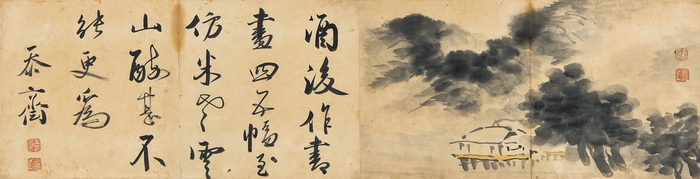 酒後作書
畫四五幅至
仿米老雲
山醉甚不
能更為
忝齋